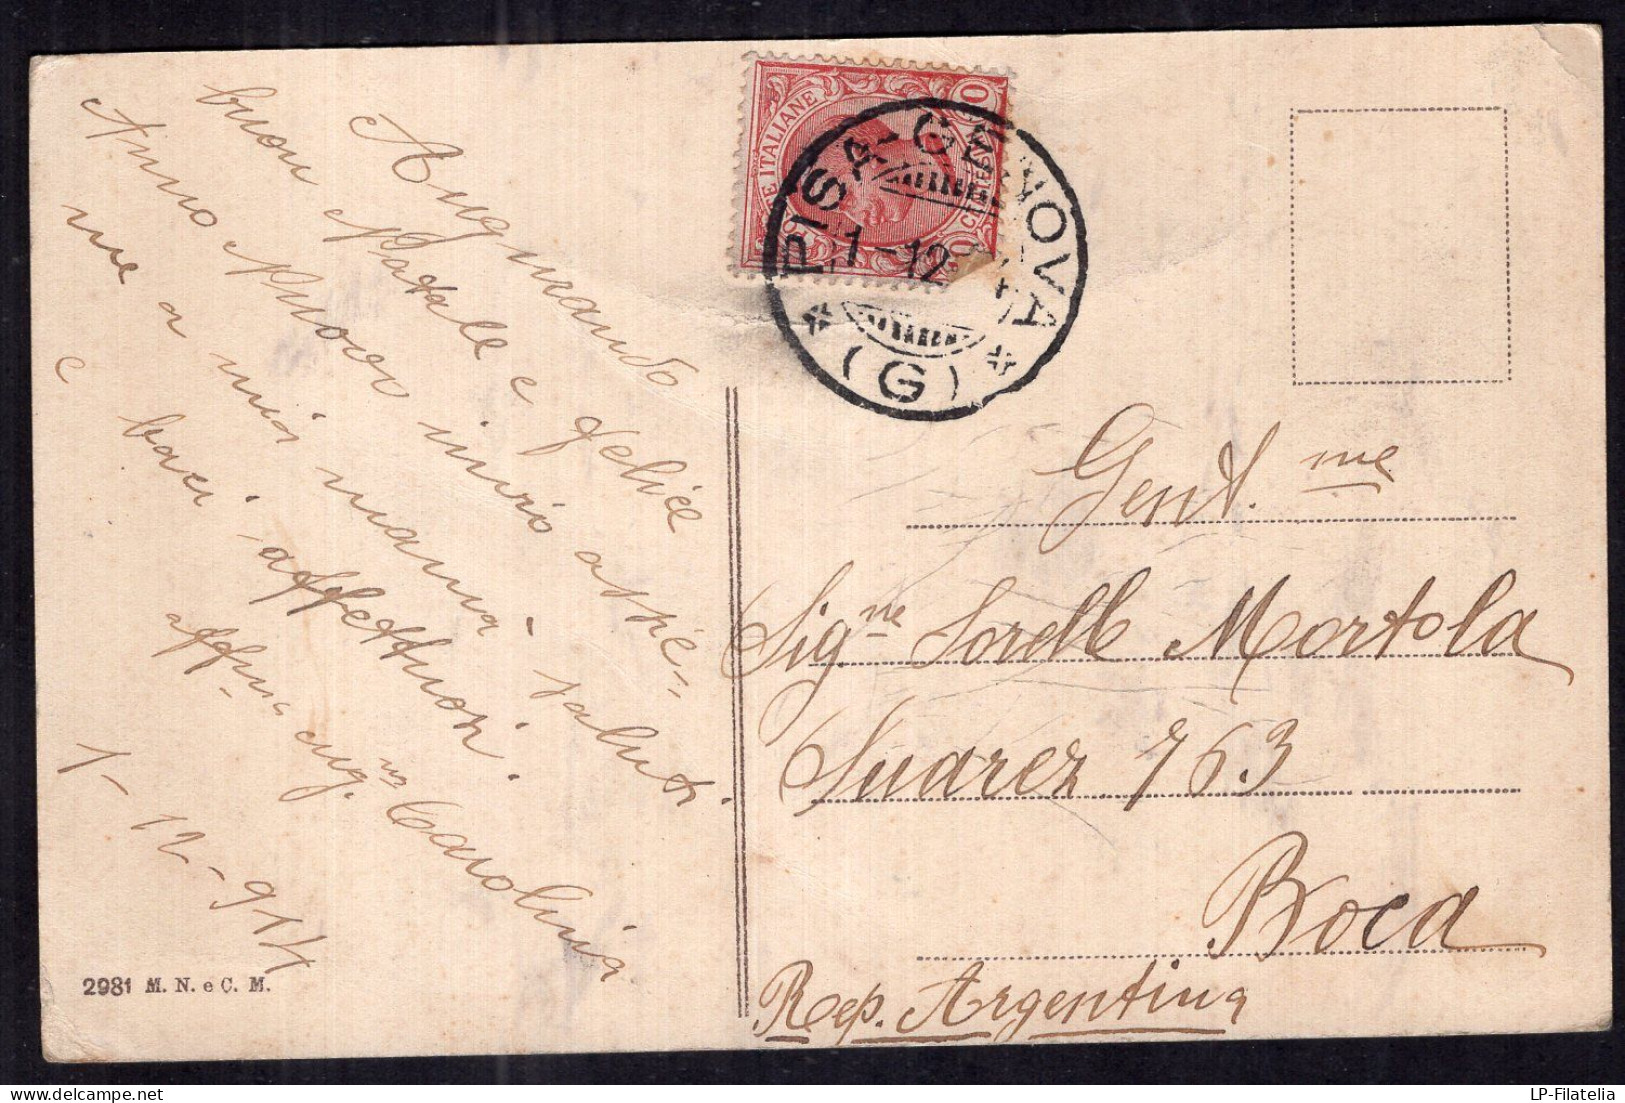 Augurando
buon Natale e felice
Anno Nuovo invio assie=
me a mia mamma saluti
e baci affettuosi.
aff.ma cug.na Carolina
1-12-914
2981 M. N. e C. M.
POSTE ITALIANE
CENTESIMI
PISA-GENOVA
1-12
(G)
Gent.me
Sig.ne Sorelle Mortola
Suarez 763
Boca
Rep. Argentina
LP-Filatelia